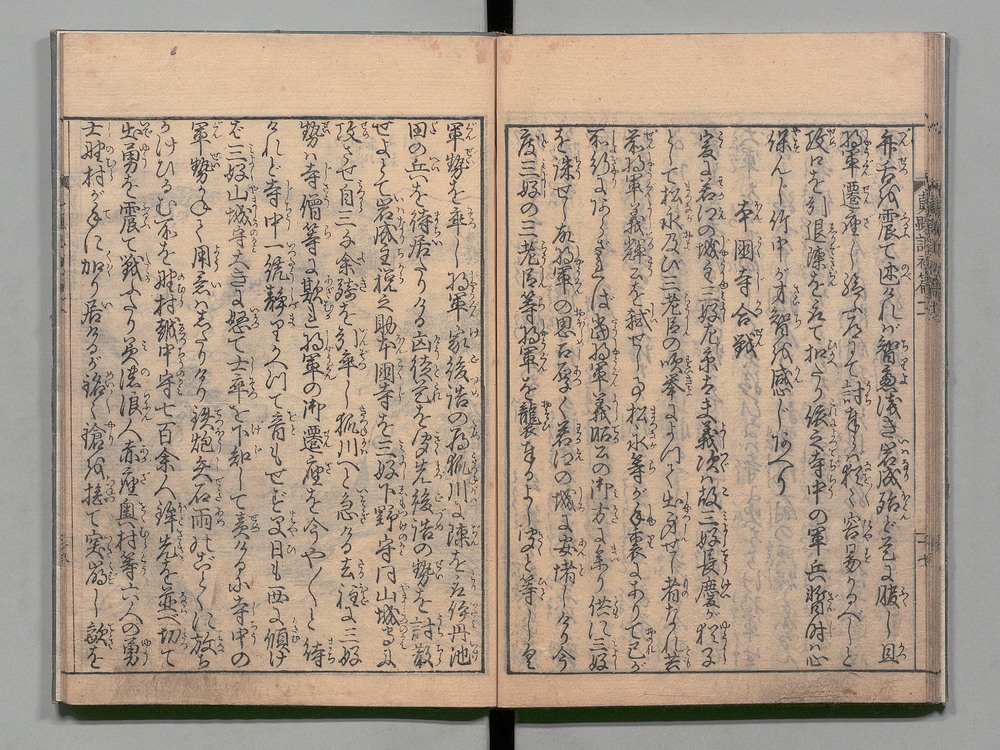 弁舌を震て述けれバ智慮浅き岩成殆ど是に服し且
将軍遷座し給ふ所にて討奉らバ和く容易かるべしと
攻口を引退陳を立て扣たり依之寺中の軍兵暫時心
保んじ竹中が才智を感じ合へり
本國寺合戦
爰に若江の城主三好左京太夫義次ハ故三好長慶が猶子
として松永及び三老臣の吹挙によつて出身せし者なれ共
前将軍義輝公を弑せし事松永等が手裏にありて己が
不行にあらざれば当将軍義昭公の御方に参り供に三好
を誅せし故将軍の恩石厚く若江の城に安堵しける今
度三好の三老臣等将軍を襲奉るよし波と等しく
軍勢を率し将軍家後詰の為狐川に陳を立伊丹池
田の兵を待居たりける凶徒是を波先後詰の勢を討散
せよとて岩成主税之助本國寺を三好下野守同山城守に
攻させ自三千余騎を引率し狐川へと急ける去程に三好
勢ハ寺僧等に欺れ将軍の御遷座を今や〳〵と待
けれど寺中一統静りかへつて音もせず日も西に傾け
ば三好山城守大きに怒て士卒を下知して責ける小寺中の
軍勢かねて用意はしたりける鉄炮矢石雨のごとくに放ち
かけひるむ所を野村越中守七百余人鋒先を並へ切て
出勇を震て戦ふたり美濃浪人赤座奥村等六人の勇
士野村が手に加り居けるが銘々鎗を捻て突崩し敵を